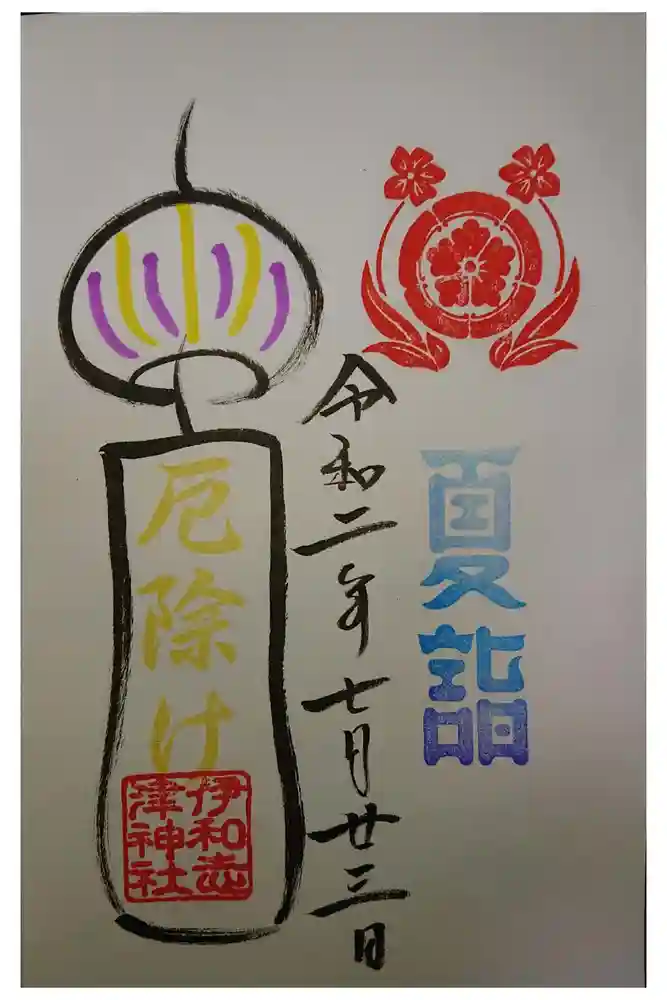 夏詣
令和二年七月廿三日
厄除け
伊和志
津神社